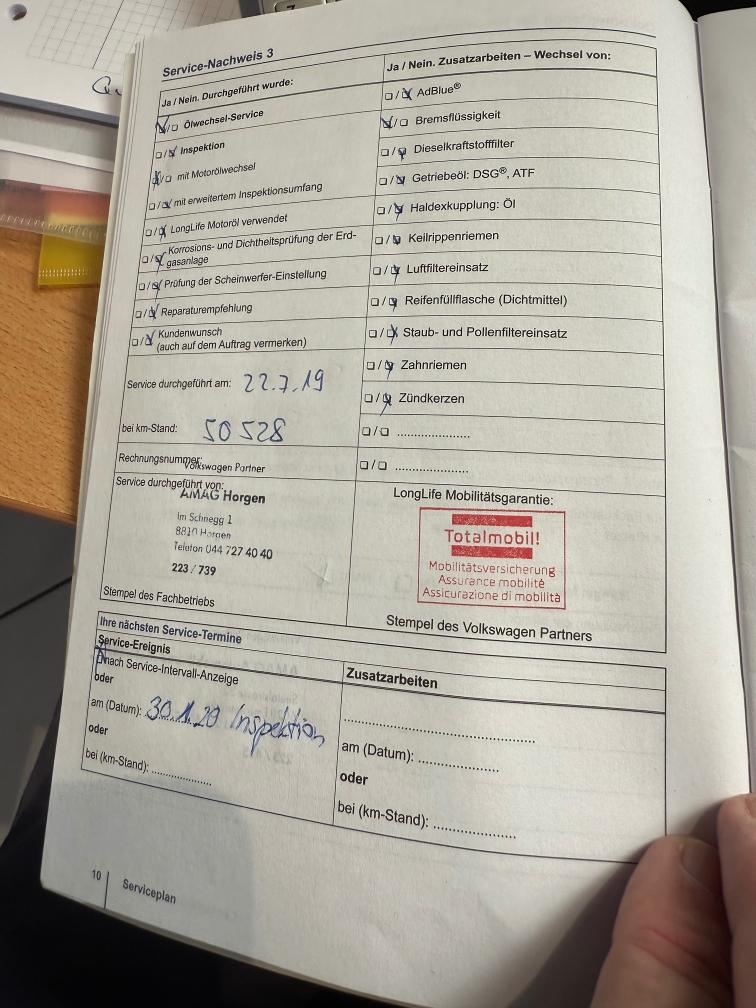 Service-Nachweis 3
Ja / Nein. Durchgeführt wurde:
☑/☐ Ölwechsel-Service
☐/☑ Inspektion
☑/☐ mit Motorölwechsel
☐/☑ mit erweitertem Inspektionsumfang
☐/☑ LongLife Motoröl verwendet
☐/☑ Korrosions- und Dichtheitsprüfung der Erd-
gasanlage
☐/☑ Prüfung der Scheinwerfer-Einstellung
☐/☑ Reparaturempfehlung
☐/☑ Kundenwunsch
(auch auf dem Auftrag vermerken)
Service durchgeführt am: 22.7.19
bei km-Stand: 50 528
Rechnungsnummer:
Volkswagen Partner
Service durchgeführt von:
AMAG Horgen
Im Schnegg 1
8810 Horgen
Telefon 044 727 40 40
223 / 739
Stempel des Fachbetriebs
Ja / Nein. Zusatzarbeiten – Wechsel von:
☐/☑ AdBlue®
☑/☐ Bremsflüssigkeit
☐/☑ Dieselkraftstofffilter
☐/☑ Getriebeöl: DSG®, ATF
☐/☑ Haldexkupplung: Öl
☐/☑ Keilrippenriemen
☐/☑ Luftfiltereinsatz
☐/☑ Reifenfüllflasche (Dichtmittel)
☐/☑ Staub- und Pollenfiltereinsatz
☐/☑ Zahnriemen
☐/☑ Zündkerzen
☐/☐ ......................
☐/☐ ......................
LongLife Mobilitätsgarantie:
Totalmobil!
Mobilitätsversicherung
Assurance mobilité
Assicurazione di mobilità
Stempel des Volkswagen Partners
Ihre nächsten Service-Termine
Service-Ereignis
nach Service-Intervall-Anzeige
oder
am (Datum): 30.1.20 Inspektion
oder
bei (km-Stand): ..................
Zusatzarbeiten
..........................................................
am (Datum): ........................
oder
bei (km-Stand): ........................
10 Serviceplan